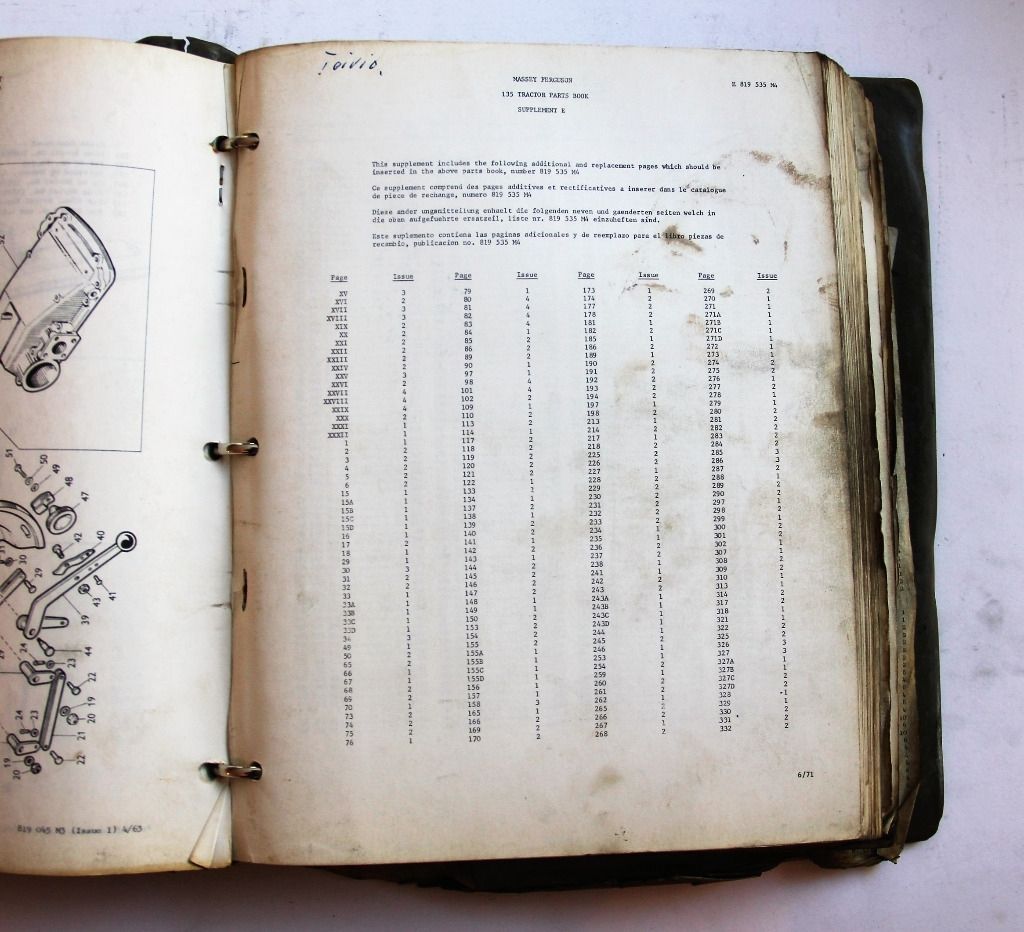 Toivio.
MASSEY FERGUSON
135 TRACTOR PARTS BOOK
SUPPLEMENT E
Z 819 535 M4
This supplement includes the following additional and replacement pages which should be
inserted in the above parts book, number 819 535 M4
Ce supplement comprend des pages additives et rectificatives a inserer dans le catalogue
de piece de rechange, numero 819 535 M4
Diese ander ungamitteilung enhuelt die folgenden neven und gaenderten seiten welch in
die oban aufgefuehrte ersatzeil, liste nr. 819 535 M4 einzuheften aind.
Este suplemento contiena las paginas adicionales y de reemplazo para el libro piezas de
recambio, publicacion no. 819 535 M4
Page Issue Page Issue Page Issue Page Issue
XV 3 79 1 173 1 269 2
XVI 2 80 4 174 2 270 1
XVII 3 81 4 177 2 271 1
XVIII 3 82 4 178 2 271A 1
XIX 2 83 4 181 1 271B 1
XX 2 84 1 182 2 271C 1
XXI 2 85 2 185 1 271D 1
XXII 2 86 2 186 2 272 1
XXIII 2 89 2 189 1 273 1
XXIV 2 90 1 190 2 274 2
XXV 3 97 1 191 2 275 2
XXVI 2 98 4 192 2 276 1
XXVII 4 101 4 193 2 277 2
XXVIII 4 102 2 194 2 278 1
XXIX 4 109 1 197 1 279 1
XXX 2 110 2 198 2 280 2
XXXI 1 113 2 213 1 281 2
XXXII 1 114 1 214 2 282 2
1 1 117 2 217 1 283 2
2 2 118 2 218 2 284 2
3 2 119 2 225 2 285 3
4 2 120 2 226 2 286 3
5 2 121 2 227 1 287 2
6 2 122 1 228 2 288 1
15 1 133 1 229 2 289 2
15A 1 134 1 230 2 290 2
15B 1 137 2 231 2 297 1
15C 1 138 1 232 2 298 2
15D 1 139 2 233 2 299 1
16 1 140 2 234 1 300 2
17 2 141 1 235 1 301 2
18 1 142 2 236 2 302 1
29 1 143 1 237 2 307 1
30 3 144 2 238 1 308 2
31 2 145 2 241 1 309 2
32 2 146 2 242 2 310 1
33 1 147 2 243 2 313 1
33A 1 148 1 243A 1 314 2
33B 1 149 1 243B 1 317 2
33C 1 150 2 243C 1 318 1
33D 1 153 2 243D 1 321 1
34 3 154 2 244 1 322 2
49 1 155 1 245 2 325 2
50 2 155A 1 246 1 326 3
65 2 155B 1 253 1 327 3
66 1 155C 1 254 2 327A 1
67 1 155D 1 259 1 327B 1
68 2 156 1 260 2 327C 2
69 2 157 1 261 2 327D 2
70 1 158 3 262 1 328 1
73 2 165 1 265 2 329 1
74 2 166 2 266 2 330 2
75 2 169 2 267 1 331 2
76 1 170 2 268 2 332 2
6/71
51
50
49
48
47
42
40
30
29
43
41
39
24
44
23
22
19
20
24
23
21
19
20
22
819 045 M3 (Issue 1) 4/63